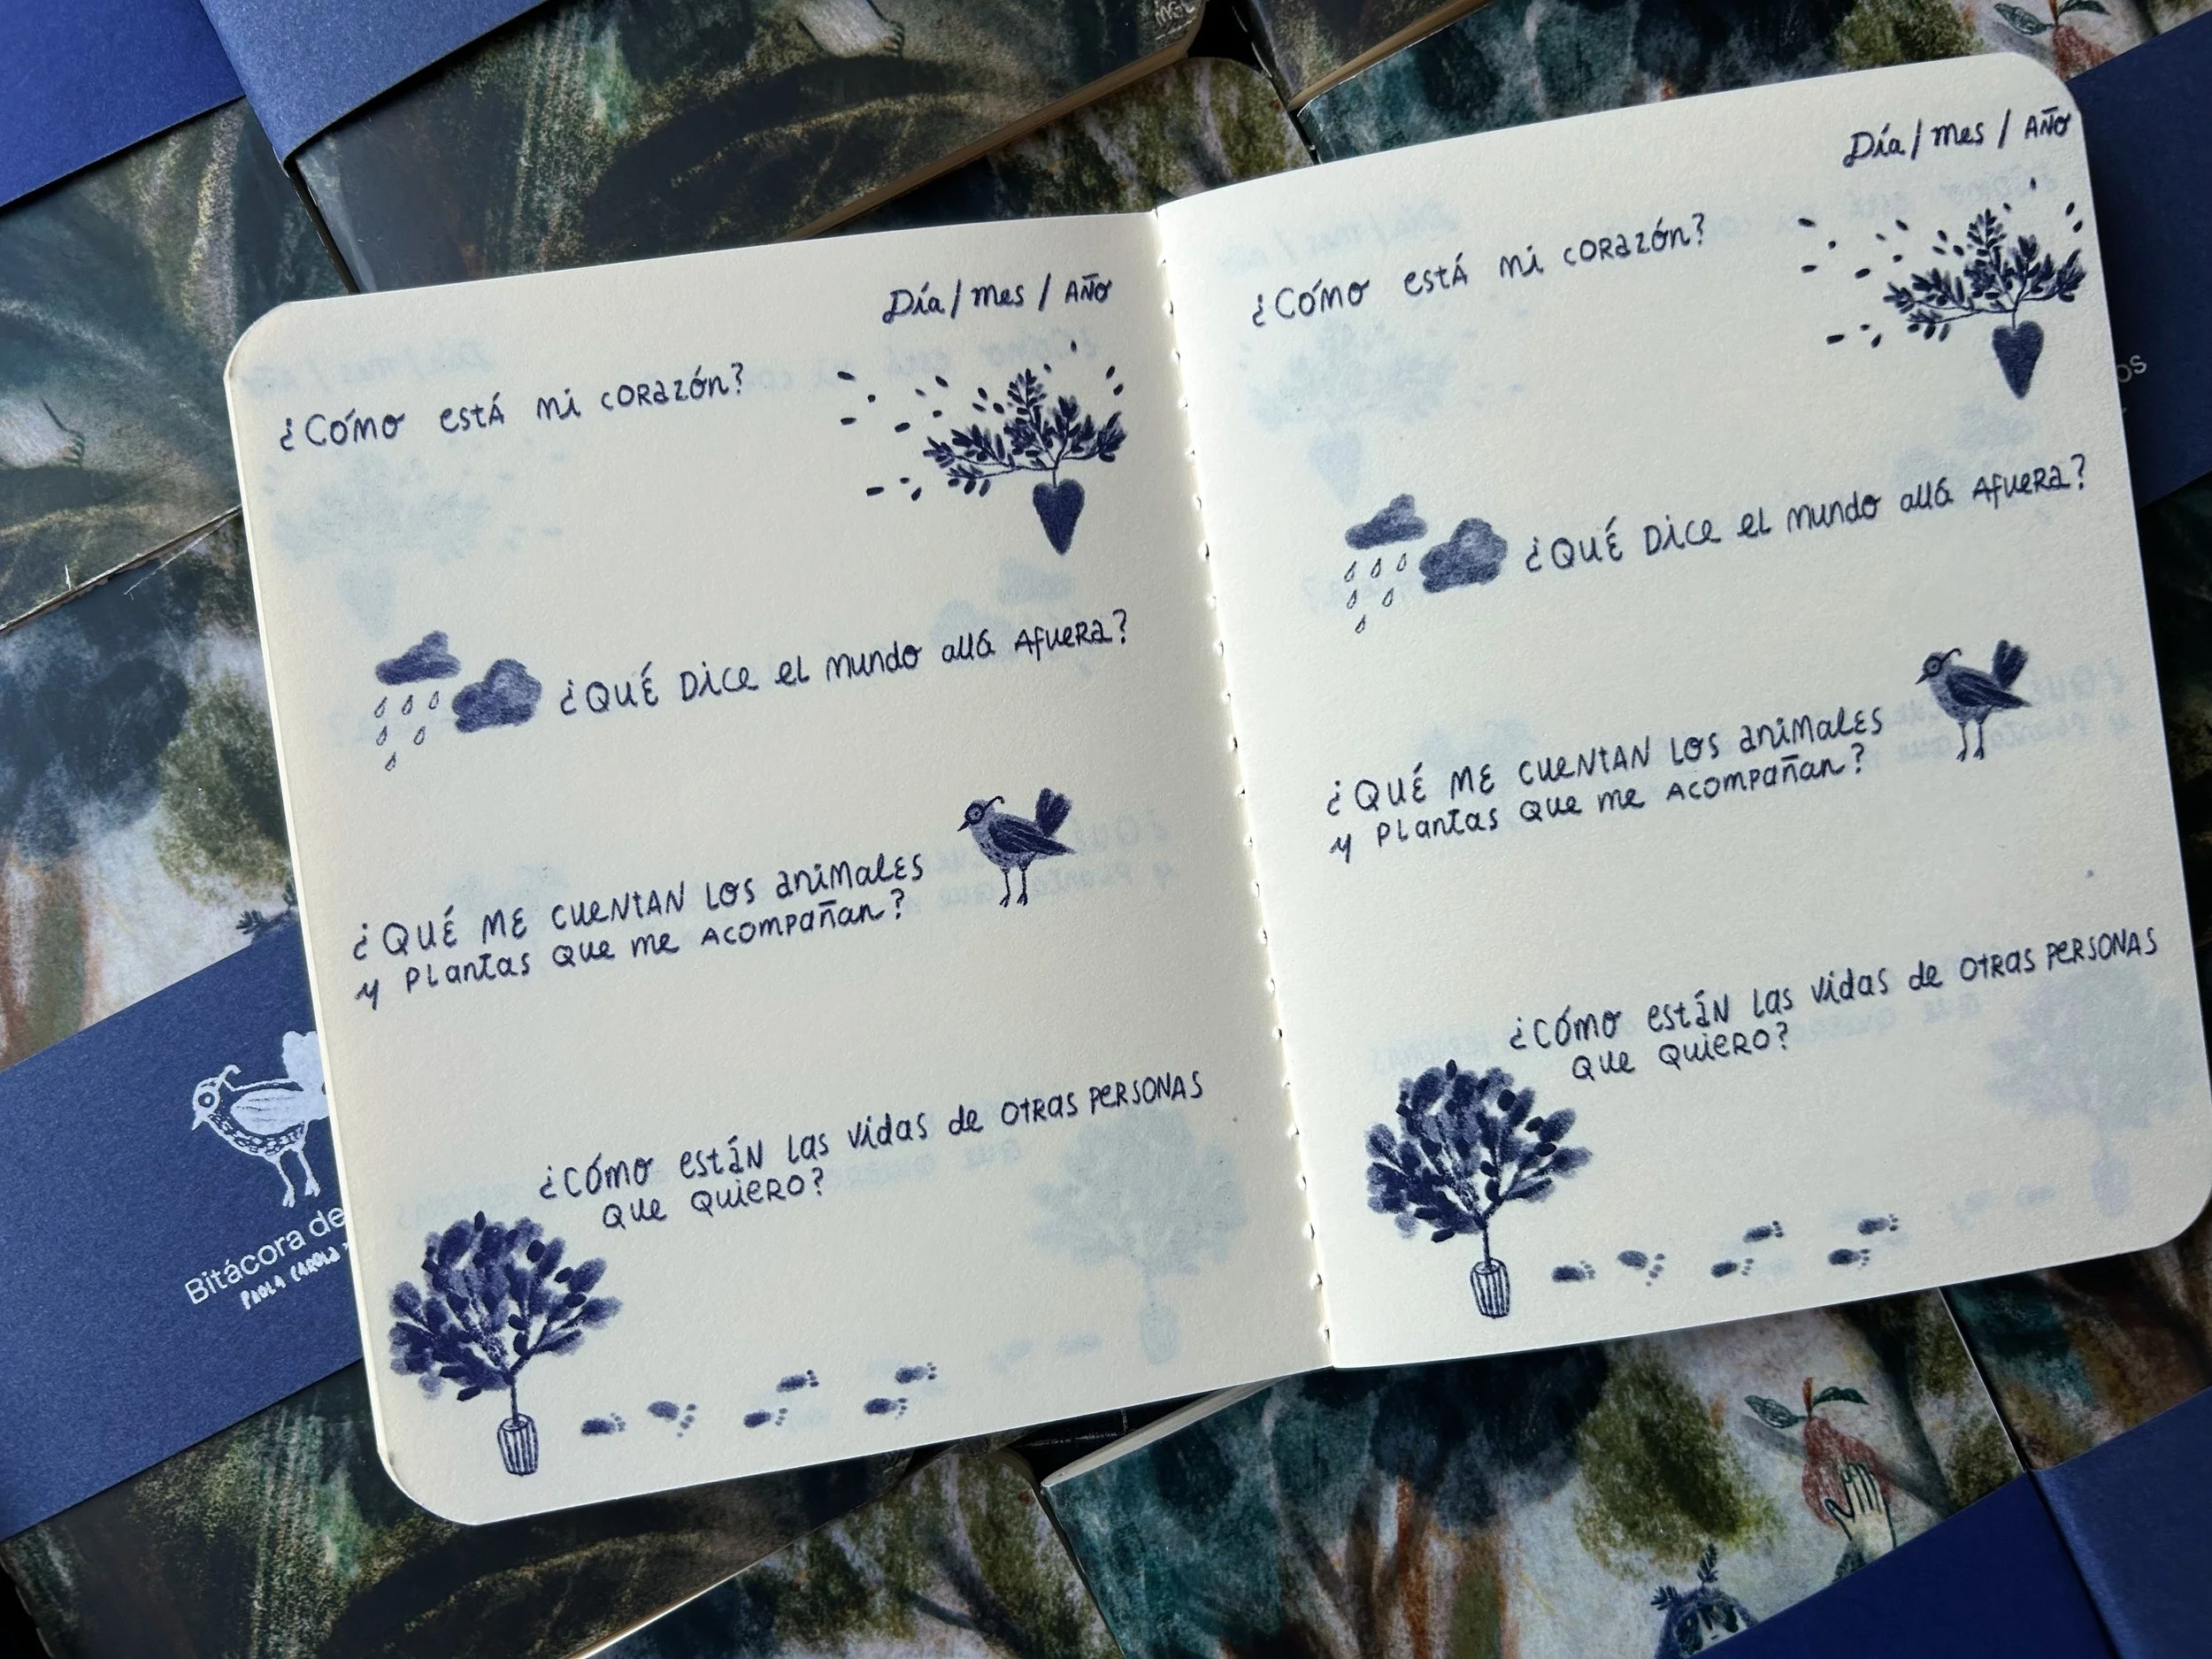 Día / mes / AÑO
¿Cómo está mi corazón?
¿QUÉ DICE el mundo allá afuera?
¿QUÉ ME CUENTAN LOS animales
y PLANTAS QUE me ACOMPAÑAN?
¿CÓMO ESTÁN LAS vidas de OTRAS PERSONAS
QUE QUIERO?
Día / mes / AÑO
¿Cómo está mi corazón?
¿QUÉ DICE el mundo allá afuera?
¿QUÉ ME CUENTAN LOS animales
y PLANTAS QUE me ACOMPAÑAN?
¿CÓMO ESTÁN LAS vidas de OTRAS PERSONAS
QUE QUIERO?
Bitácora de
PAOLA CAROLA
os